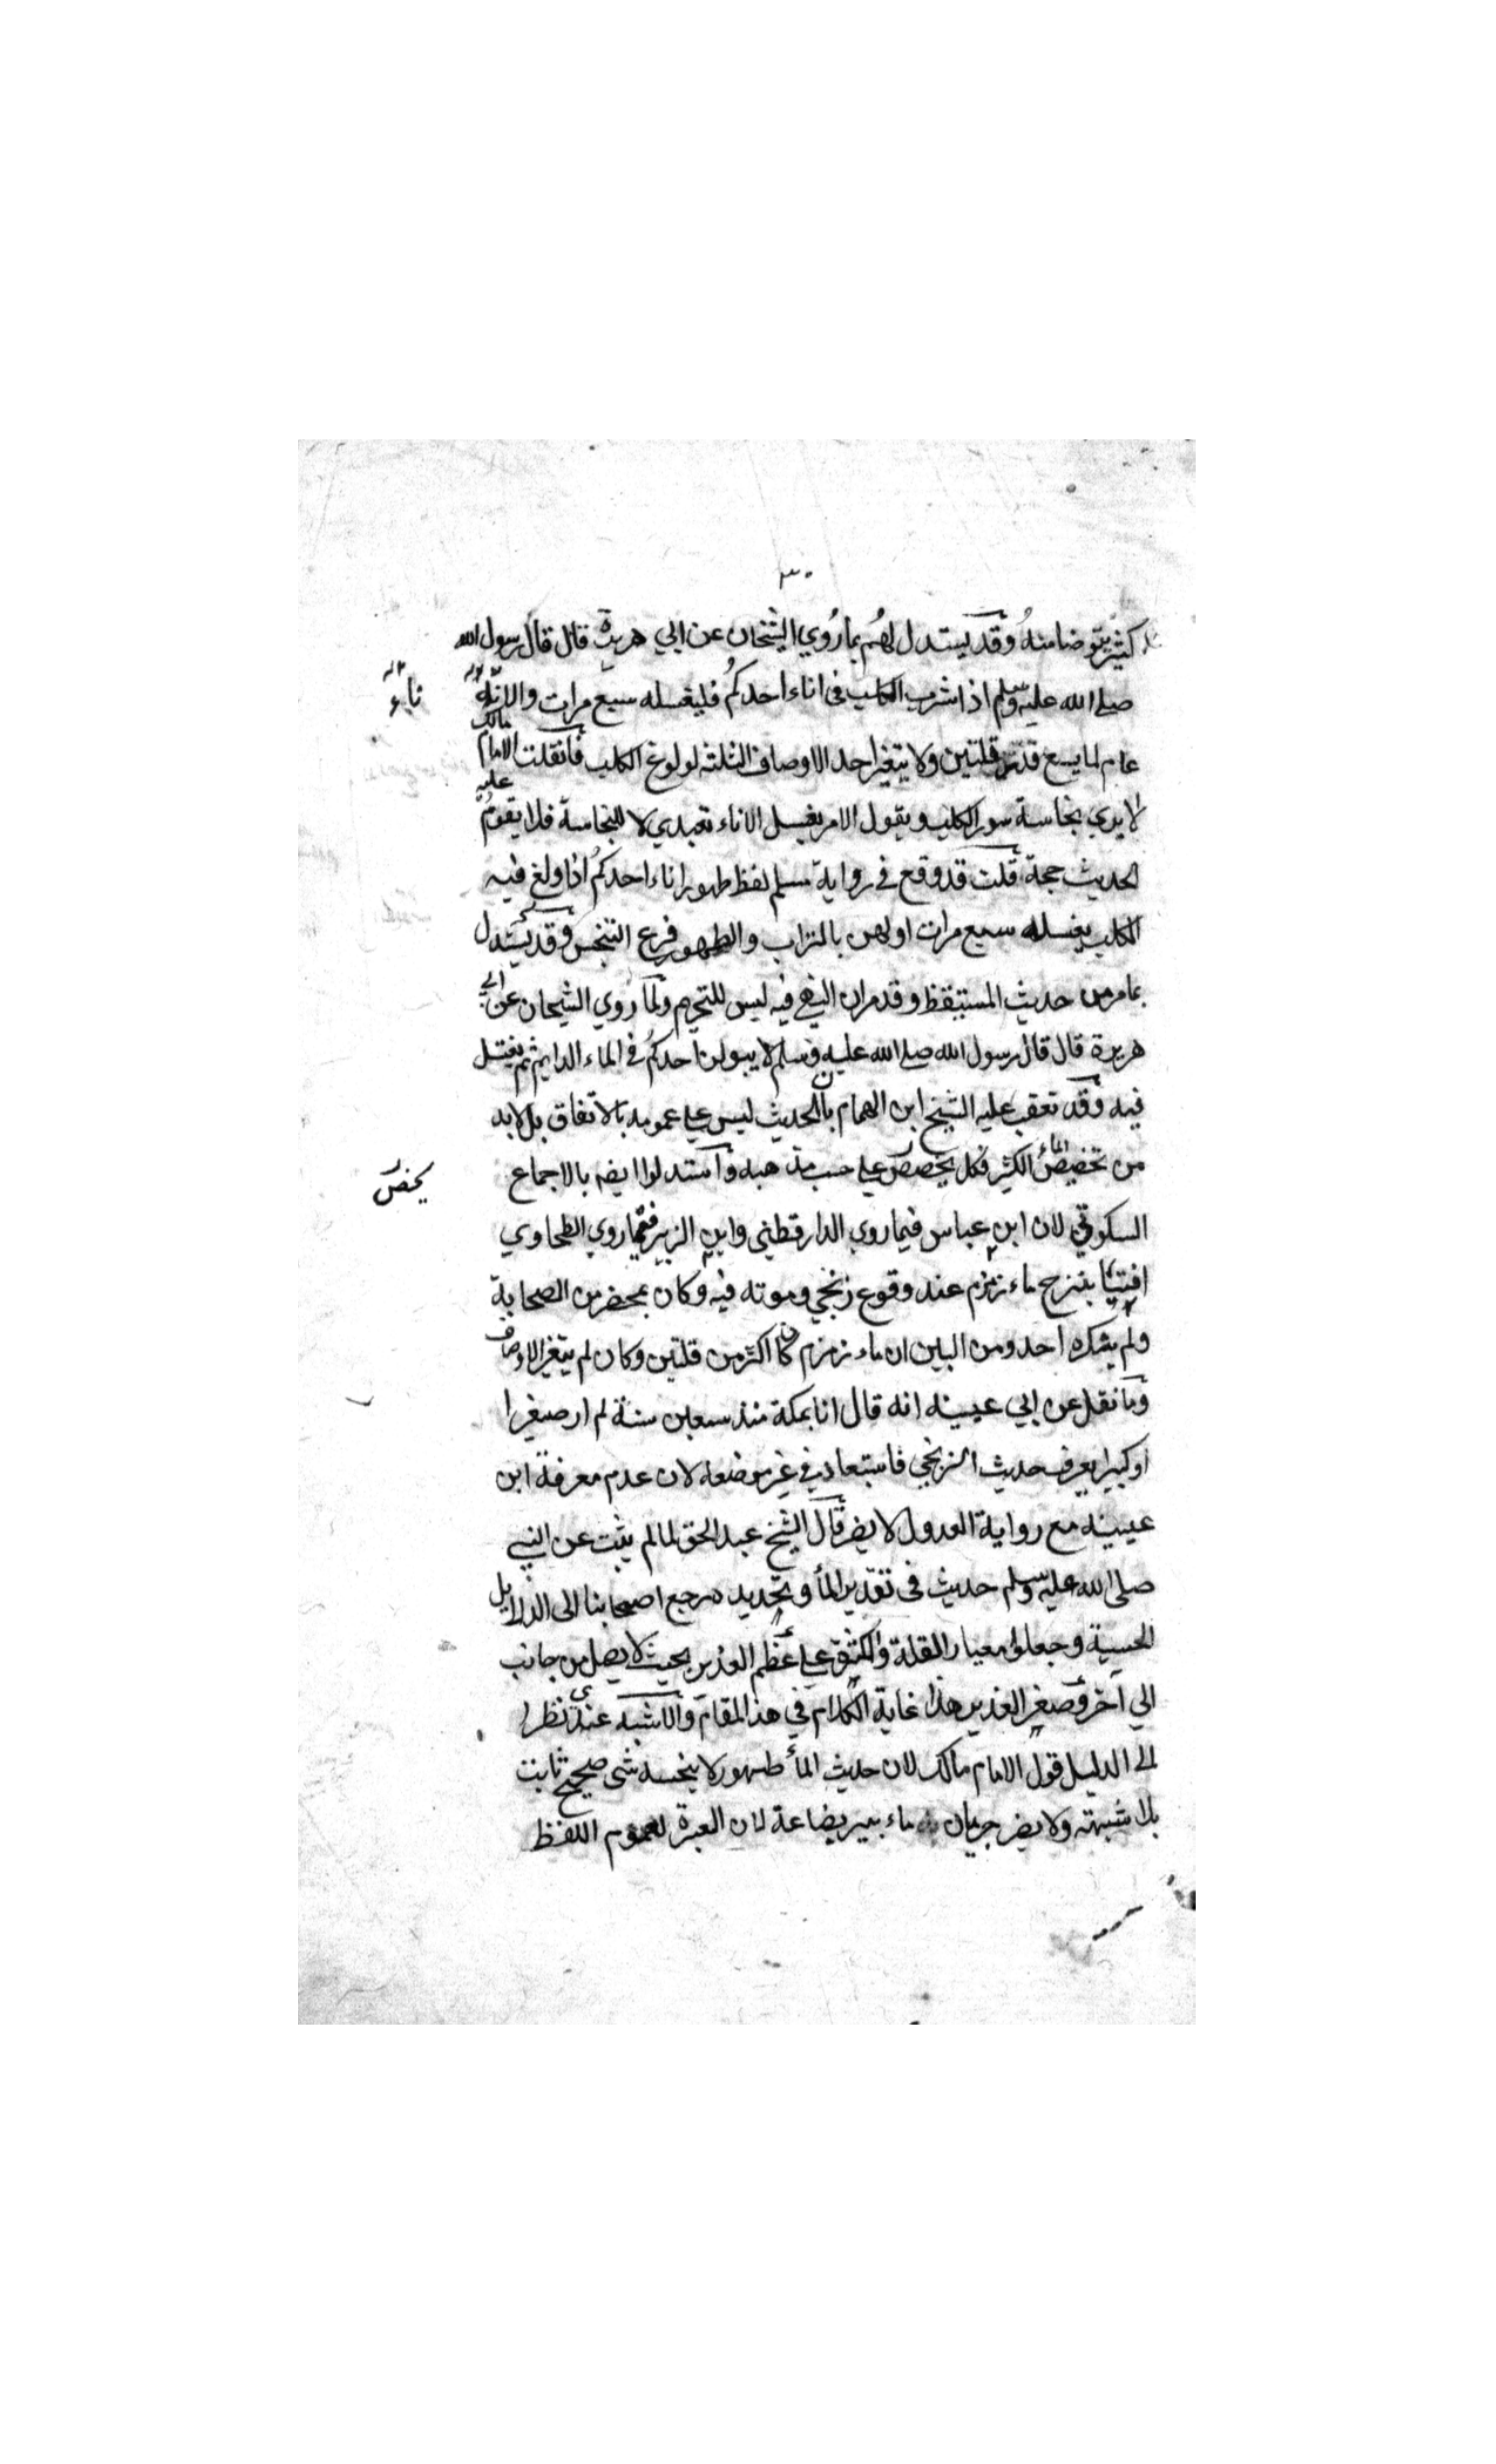 ٣٠
كثير يتوضا منه وقد يستدل لهم بما روي الشيخان عن ابي هريرة قال قال رسول الله
صلى الله عليه وسلم اذا شرب الكلب في اناء احدكم فليغسله سبع مرات والانآء
ناء
عام لما يسع قدر قلتين ولا يتغير احد الاوصاف الثلثة لولوغ الكلب فان قلت الامام مالك
لا يري نجاسة سور الكلب ويقول الامر بغسل الاناء تعبدي لا للنجاسة فلا يقوم عليه
الحديث حجة قلت قد وقع في رواية مسلم لفظ طهور اناء احدكم اذا ولغ فيه
الكلب يغسله سبع مرات اولهن بالتراب والطهور فرع التنجس وقد يستدل
بما مر من حديث المستيقظ وقد مر ان النهي فيه ليس للتحريم ولما روي الشيخان عن ابي
هريرة قال قال رسول الله صلى الله عليه وسلم لا يبولن احدكم في الماء الدايم ثم يغتسل
فيه وقد تعقب عليه الشيخ ابن الهمام بان الحديث ليس على عمومه بالاتفاق بل لابد
من تخصيص الماء الكثير فكل يخصص على حسب مذهبه واستدلوا ايضه بالاجماع
يخص
السكوتي لان ابن عباس فيما روي الدارقطني وابن الزبير فيما روي الطحاوي
افتيا بنزح ماء زمزم عند وقوع زنجي وموته فيه وكان بمحضر من الصحابة
ولم ينكره احد ومن البين ان ماء زمزم كان اكثر من قلتين وكان لم يتغير الاوصاف
وما نقل عن ابي عيينه انه قال انا بمكة منذ سبعين سنة لم ار صغيرا
او كبيرا يعرف حديث الزنجي فاستبعاد في غير موضعه لان عدم معرفة ابن
عيينه مع رواية العدول لا يضر قال الشيخ عبد الحق لما لم يثبت عن النبي
صلى الله عليه وسلم حديث في تقدير المأ وتحديده رجع اصحابنا الى الدلايل
الحسية وجعلوا معيار القلة والكثرة على عظم الغدير بحيث لا يصل من جانب
الي آخر وصغر الغدير هذا غاية الكلام في هذا المقام والاشبه عندي نظرا
الى الدليل قول الامام مالك لان حديث المأ طهور لا ينجسه شى صحيح ثابت
بلا شبهته ولا يضر جريان ماء بير بضاعة لان العبرة لعموم اللفظ